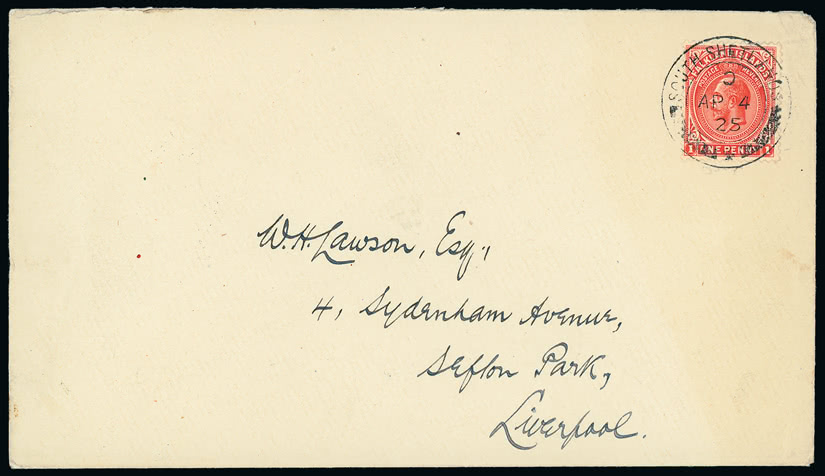 SOUTH SHETLANDS
C
AP 4
25
FALKLAND ISLANDS
POSTAGE REVENUE
1 ONE PENNY 1
W. H. Lawson, Esq.,
4, Sydenham Avenue,
Sefton Park,
Liverpool.